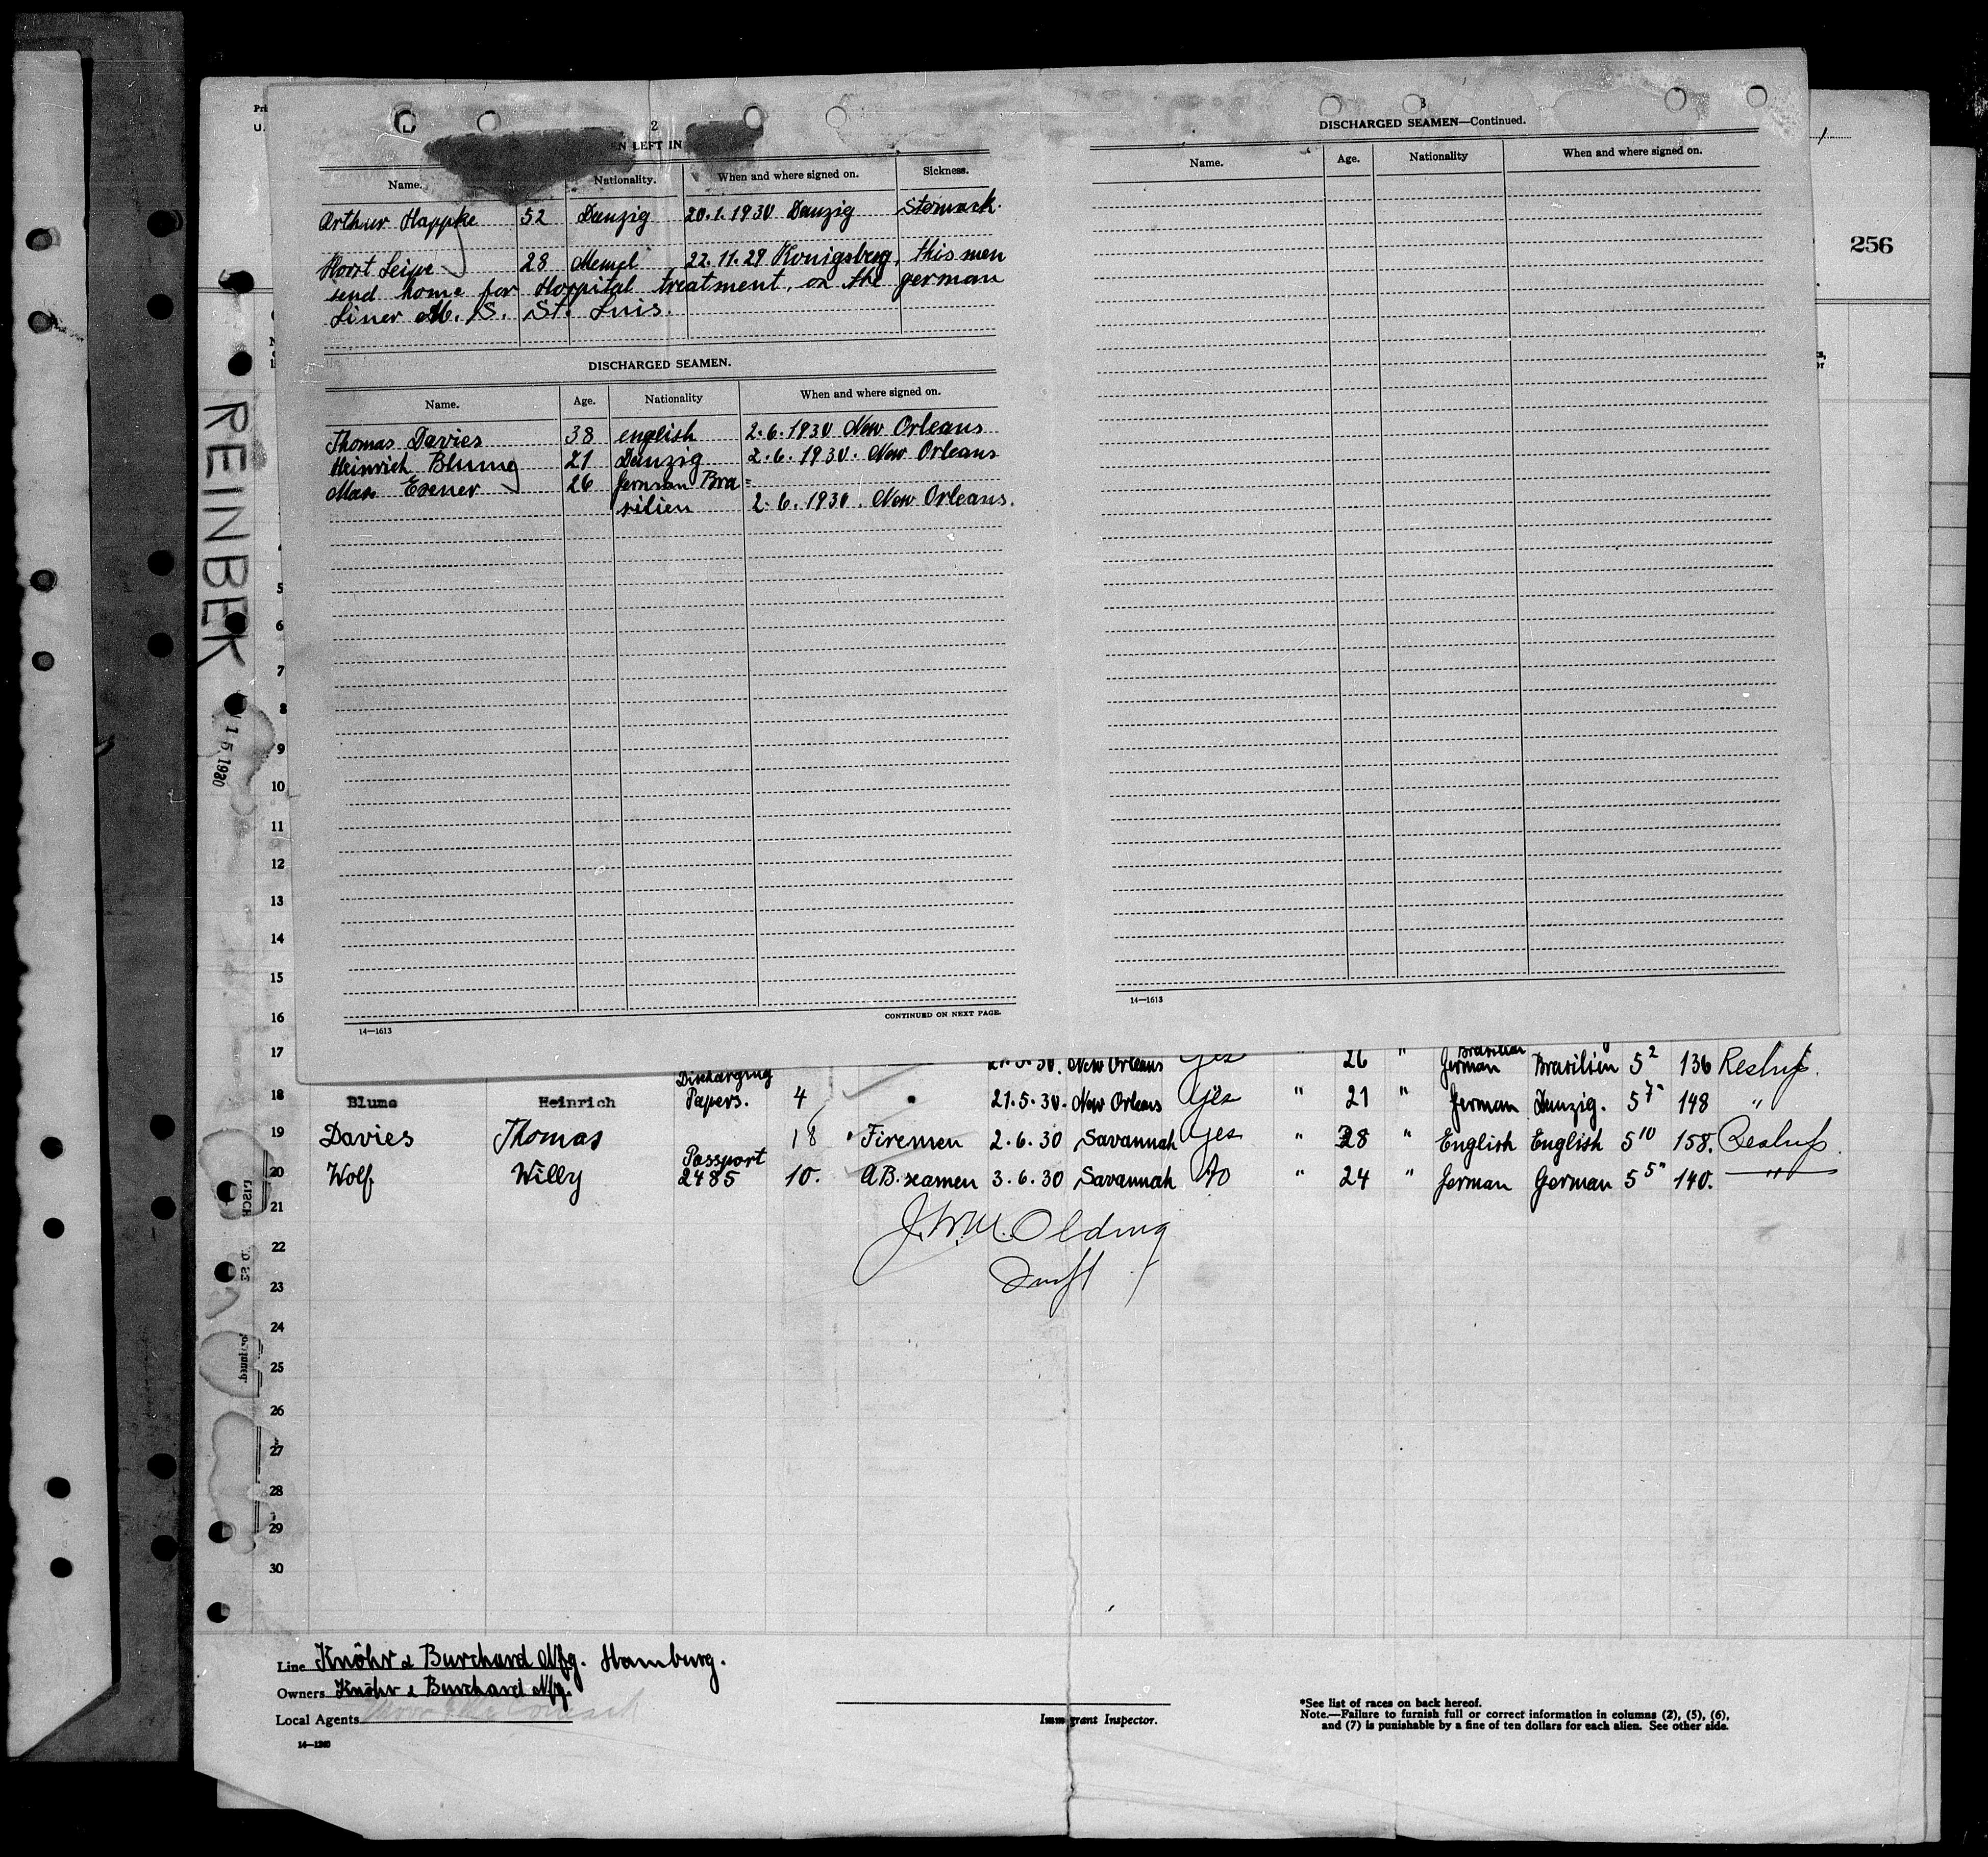 2
EN LEFT IN
Name. Nationality. When and where signed on. Sickness.
Arthur Happke 52 Danzig 20.1.1930 Danzig Stomach.
Horst Leipe 28 Memel 22.11.29 Konigsberg, this men
send home for Hospital treatment, on the german
Liner M. S. St. Luis.
DISCHARGED SEAMEN.
Name. Age. Nationality When and where signed on.
Thomas Davies 38 english 2.6.1930 New Orleans
Heinrich Blume 21 Danzig 2.6.1930. New Orleans
Max Exener 26 german Bra=
silien 2.6.1930. New Orleans.
14—1613
CONTINUED ON NEXT PAGE.
3
DISCHARGED SEAMEN—Continued.
Name. Age. Nationality When and where signed on.
14—1613
256
REINBEK
15 1930
5
6
7
8
9
10
11
12
13
14
15
16
17 New Orleans Yes " 26 " Brasilian
German Brasilien 5 2 136
Discharging
18 Blume Heinrich Papers. 4 " 21.5.30. New Orleans Yes " 21 " German Danzig. 5 7" 148 "
19 Davies Thomas 18 Firemen 2.6.30 Savannah Yes " 28 " English English 5 10 158.
Passport
20 Wolf Willy 2485 10. AB. seamen 3.6.30 Savannah No " 24 " German German 5 5" 140. "
21
J. Wm. Olding
22
23
24
25
26
27
28
29
30
Line Knöhr & Burchard Nfg. Hamburg.
Owners Knöhr & Burchard Nfg.
Local Agents
14—1240
Immigrant Inspector.
*See list of races on back hereof.
Note.—Failure to furnish full or correct information in columns (2), (5), (6),
and (7) is punishable by a fine of ten dollars for each alien. See other side.